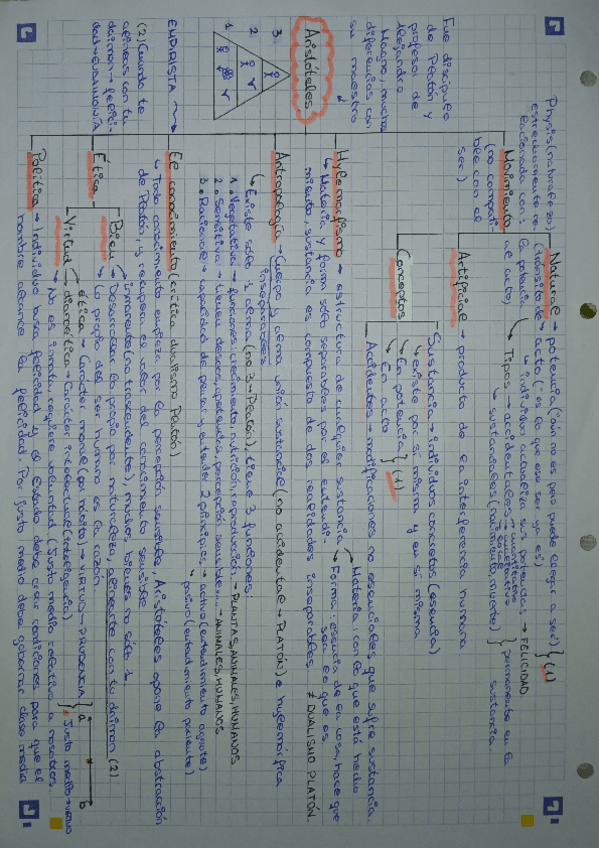 Fue discípulo
de Platón y
profesor de
Alejandro
Magno, mucha
diferencias con
su maestro
Aristóteles
3.
2
1
EMPIRISTA
(2) Cuando te
alineas con tu
daimon → felici-
dad → EUDAIMONÍA
Physis (naturaleza)
estrechamente re-
lacionada con:
Movimiento
(no compati-
ble con el
ser)
Natural → potencia (aún no es pero puede llegar a ser) } (1)
(tránsito de → acto (es lo que ese ser ya es)
la potencia → individuo actualiza sus potencias → FELICIDAD
al acto)
Tipos → accidentales → cuantitativo
cualitativo
local
} permanente en la
sustancia
→ sustanciales (nacimiento, muerte)
Artificial → producto de la interferencia humana
Conceptos
Sustancia → individuos concretos (esencia)
↳ existe por sí misma y en sí misma
↳ En potencia } (1)
↳ En acto
Accidentes → modificaciones no esenciales que sufre sustancia.
Hylemorfismo → estructura de cualquier sustancia
Materia: con lo que está hecho
Forma: esencia de la cosa, hace que
sea lo que es
↳ Materia y forma solo separables por el entendi-
miento, sustancia es compuesto de dos realidades inseparables. ≠ DUALISMO PLATÓN.
Antropología → Cuerpo y alma unión sustancial (no accidental → PLATÓN) e hylemórfica
inseparables
↳ Existe solo 1 alma (no 3 → Platón), tiene 3 funciones:
1. Vegetativa → funciones: crecimiento, nutrición, reproducción → PLANTAS, ANIMALES, HUMANOS
2. Sensitiva → tienen deseos, apetitos, percepción sensible... → ANIMALES, HUMANOS
3. Racional → capacidad de pensar y entender 2 principios → activo (entendimiento agente)
pasivo (entendimiento paciente)
El conocimiento (crítica dualismo Platón)
↳ Todo conocimiento empieza por la percepción sensible. Aristóteles apoya la abstracción
de Platón, y recupera el valor del conocimiento sensible
Ética
Bien
→ inmanente (no trascendente), muchos bienes no sólo 1.
→ Desarrollar lo propio por naturaleza, alinearte con tu daimon (2)
↳ Lo propio del ser humano es la razón.
Virtud
→ ética → Carácter moral (por hábito) → VIRTUD → PRUDENCIA
→ dianoética → Carácter intelectual (inteligencia)
} justo medio → virtud
a
b
→ No es innata, requiere voluntad (Justo medio relativo a nosotros.
Política → Individuo busca felicidad y el Estado debe crear condiciones para que el
hombre alcance la felicidad. Por justo medio debe gobernar clase media